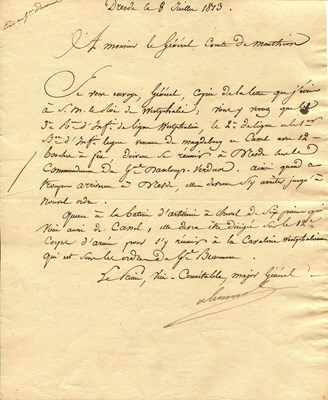 Dresde le 8 Juillet 1813.
A monsieur le Général Comte de
Je vous envoye, Général, Copie de la lettre que j'écris
à S. M. le Roi de Westphalie; vous y verrez que le
3e Bon d'Infie de ligne Westphalien, le 2e de ligne et le 1er
Bon d'Infie legere venant de Magdebourg et Cassel avec 12
bouches à feu, doivent se réunir à Dresde sous le
Commandement du Gal ainsi quand ces
troupes arriveront à Dresde, elles devront s'y arrêter jusqu'à
nouvel ordre.
Quant à la batterie d'artillerie à cheval de six pièces qui
vient aussi de Cassel, elle devra être dirigée sur le 12e
Corps d'armée pour s'y réunir à la Cavalerie Westphalienne
qui est sous les ordres du Gal Beaumont.
Le Prince, Vice-Connétable, major Général